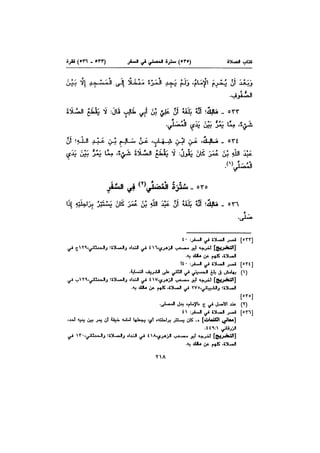 كتاب الصلاة (٥٣٥) سترة المصلي في السفر ٥٣٣ - ٥٣٦ فقرة
وَبَعْدَ أَنْ يُحْرِمَ الْإِمَامُ، وَلَمْ يَجِدِ الْمَرْءُ مَدْخَلًا إِلَى الْمَسْجِدِ إِلَّا بَيْنَ
الصُّفُوفِ.
٥٣٣ - مَالِكٌ؛ أَنَّهُ بَلَغَهُ أَنَّ عَلِيَّ بْنَ أَبِي طَالِبٍ قَالَ: لَا يَقْطَعُ الصَّلَاةَ
شَيْءٌ، مِمَّا يَمُرُّ بَيْنَ يَدَيِ الْمُصَلِّي.
٥٣٤ - مَالِكٌ، عَنِ ابْنِ شِهَابٍ، عَنْ سَالِمِ بْنِ عَبْدِ اللهِ؛ أَنَّ
عَبْدَ اللهِ بْنَ عُمَرَ كَانَ يَقُولُ: لَا يَقْطَعُ الصَّلَاةَ شَيْءٌ، مِمَّا يَمُرُّ بَيْنَ يَدَيِ
الْمُصَلِّي(١).
٥٣٥ - سُتْرَةُ الْمُصَلِّي(٢) فِي السَّفَرِ
٥٣٦ - مَالِكٌ؛ أَنَّهُ بَلَغَهُ أَنَّ عَبْدَ اللهِ بْنَ عُمَرَ كَانَ يَسْتَتِرُ بِرَاحِلَتِهِ إِذَا
صَلَّى.
[٥٣٣] قصر الصلاة في السفر: ٤٠
[التخريج] أخرجه أبو مصعب الزهري، ٤١٦ في النداء والصلاة؛ والحدثاني، ١٢٩ج في
الصلاة، كلهم عن مالك به.
[٥٣٤] قصر الصلاة في السفر: ٤٠أ
(١) بهامش ق
[التخريج] أخرجه أبو مصعب الزهري، ٤١٧ في النداء والصلاة؛ والحدثاني، ١٢٩ب في
الصلاة؛ والشيباني، ٢٧٥ في الصلاة، كلهم عن مالك به.
[٥٣٥]
(٢) عند الأصل في ج «الإمام» بدل المصلي.
[٥٣٦] قصر الصلاة في السفر: ٤١
[معاني الكلمات] «.. كان يستتر براحلته» أي: يجعلها أمامه خيفة أن يمر بين يديه أحد،
الزرقاني ٤٤٩:١
[التخريج] أخرجه أبو مصعب الزهري، ٤١٨ في النداء والصلاة؛ والحدثاني، ١٣٠ في
الصلاة، كلهم عن مالك به.
٢١٨